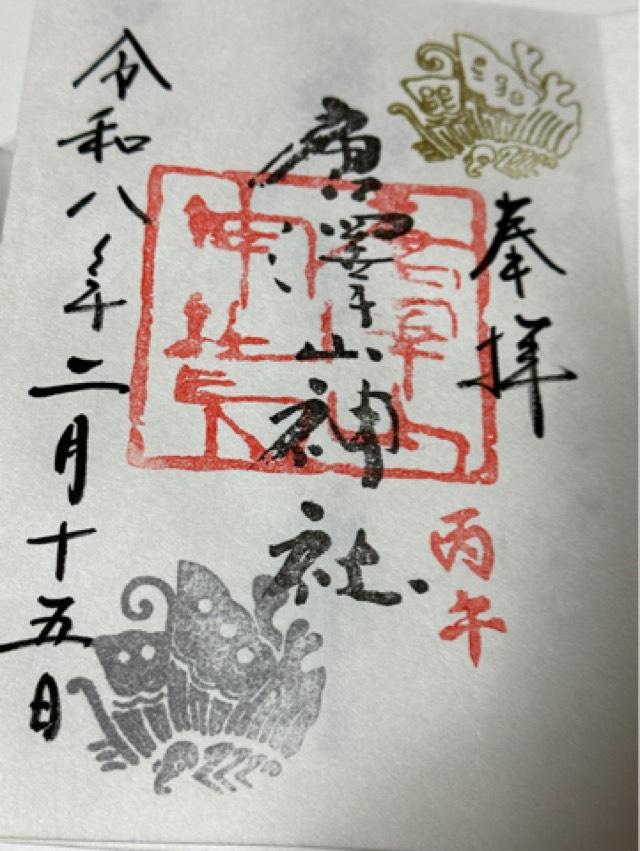 奉拝
丙午
唐澤山神社
令和八年二月十五日